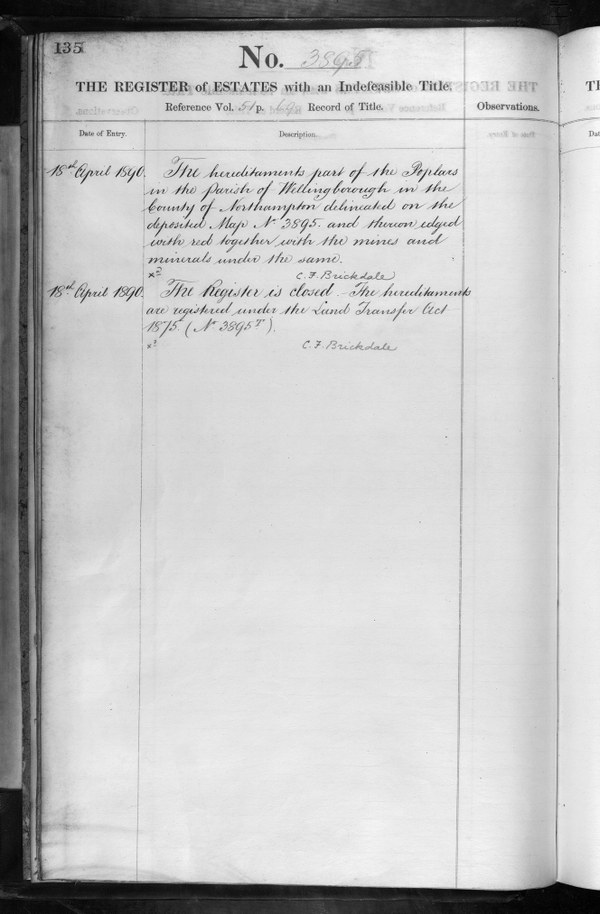 135
No. 3895
THE REGISTER of ESTATES with an Indefeasible Title.
Reference Vol. 51 p. 69 Record of Title.
Observations.
Date of Entry.
Description.
18th April 1890.
The hereditaments part of the Poplars
in the Parish of Wellingborough in the
County of Northampton delineated on the
deposited Map No. 3895. and thereon edged
with red together with the mines and
minerals under the same.
C. F. Brickdale
18th April 1890.
The Register is closed. The hereditaments
are registered under the Land Transfer Act
1875. (No. 3895T).
C. F. Brickdale